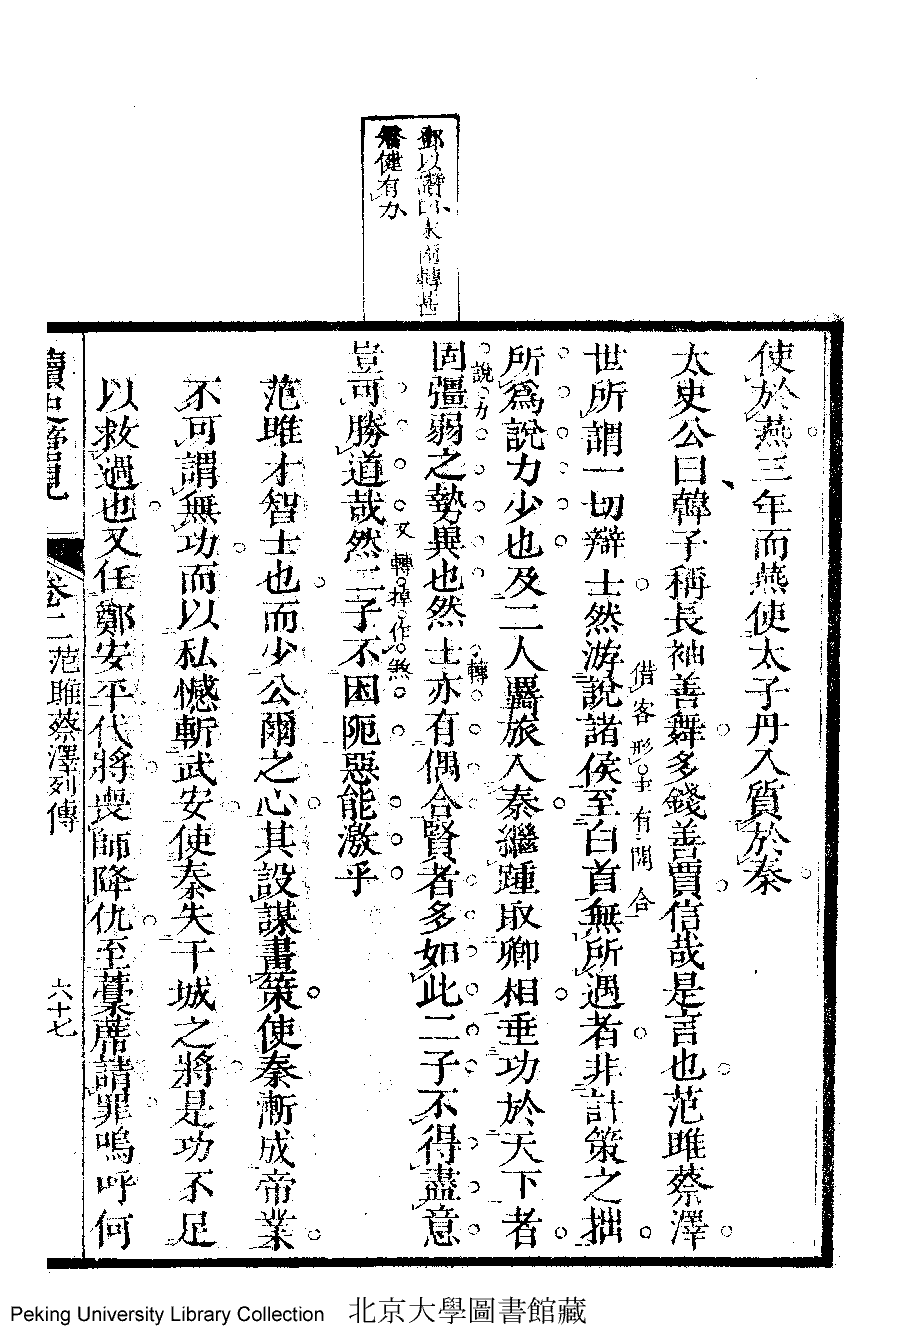 使於燕三年而燕使太子丹入質於秦
太史公曰韓子稱長袖善舞多錢善賈信哉是言也范雎蔡澤
借客形主有開合
世所謂一切辯士然游說諸侯至白首無所遇者非計策之拙
所爲說力少也及二人羇旅入秦繼踵取卿相垂功於天下者
說力
固彊弱之勢異也然士亦有偶合賢者多如此二子不得盡意
轉
又轉掉作煞
豈可勝道哉然二子不困阨惡能激乎
范雎才智士也而少公爾之心其設謀畫策使秦漸成帝業
不可謂無功而以私憾斬武安使秦失干城之將是功不足
以救過也又任鄭安平代將喪師降仇至藳蓆請罪嗚呼何
讀史管見
卷二 范雎蔡澤列傳
六十七
健有力
Peking University Library Collection 北京大學圖書館藏